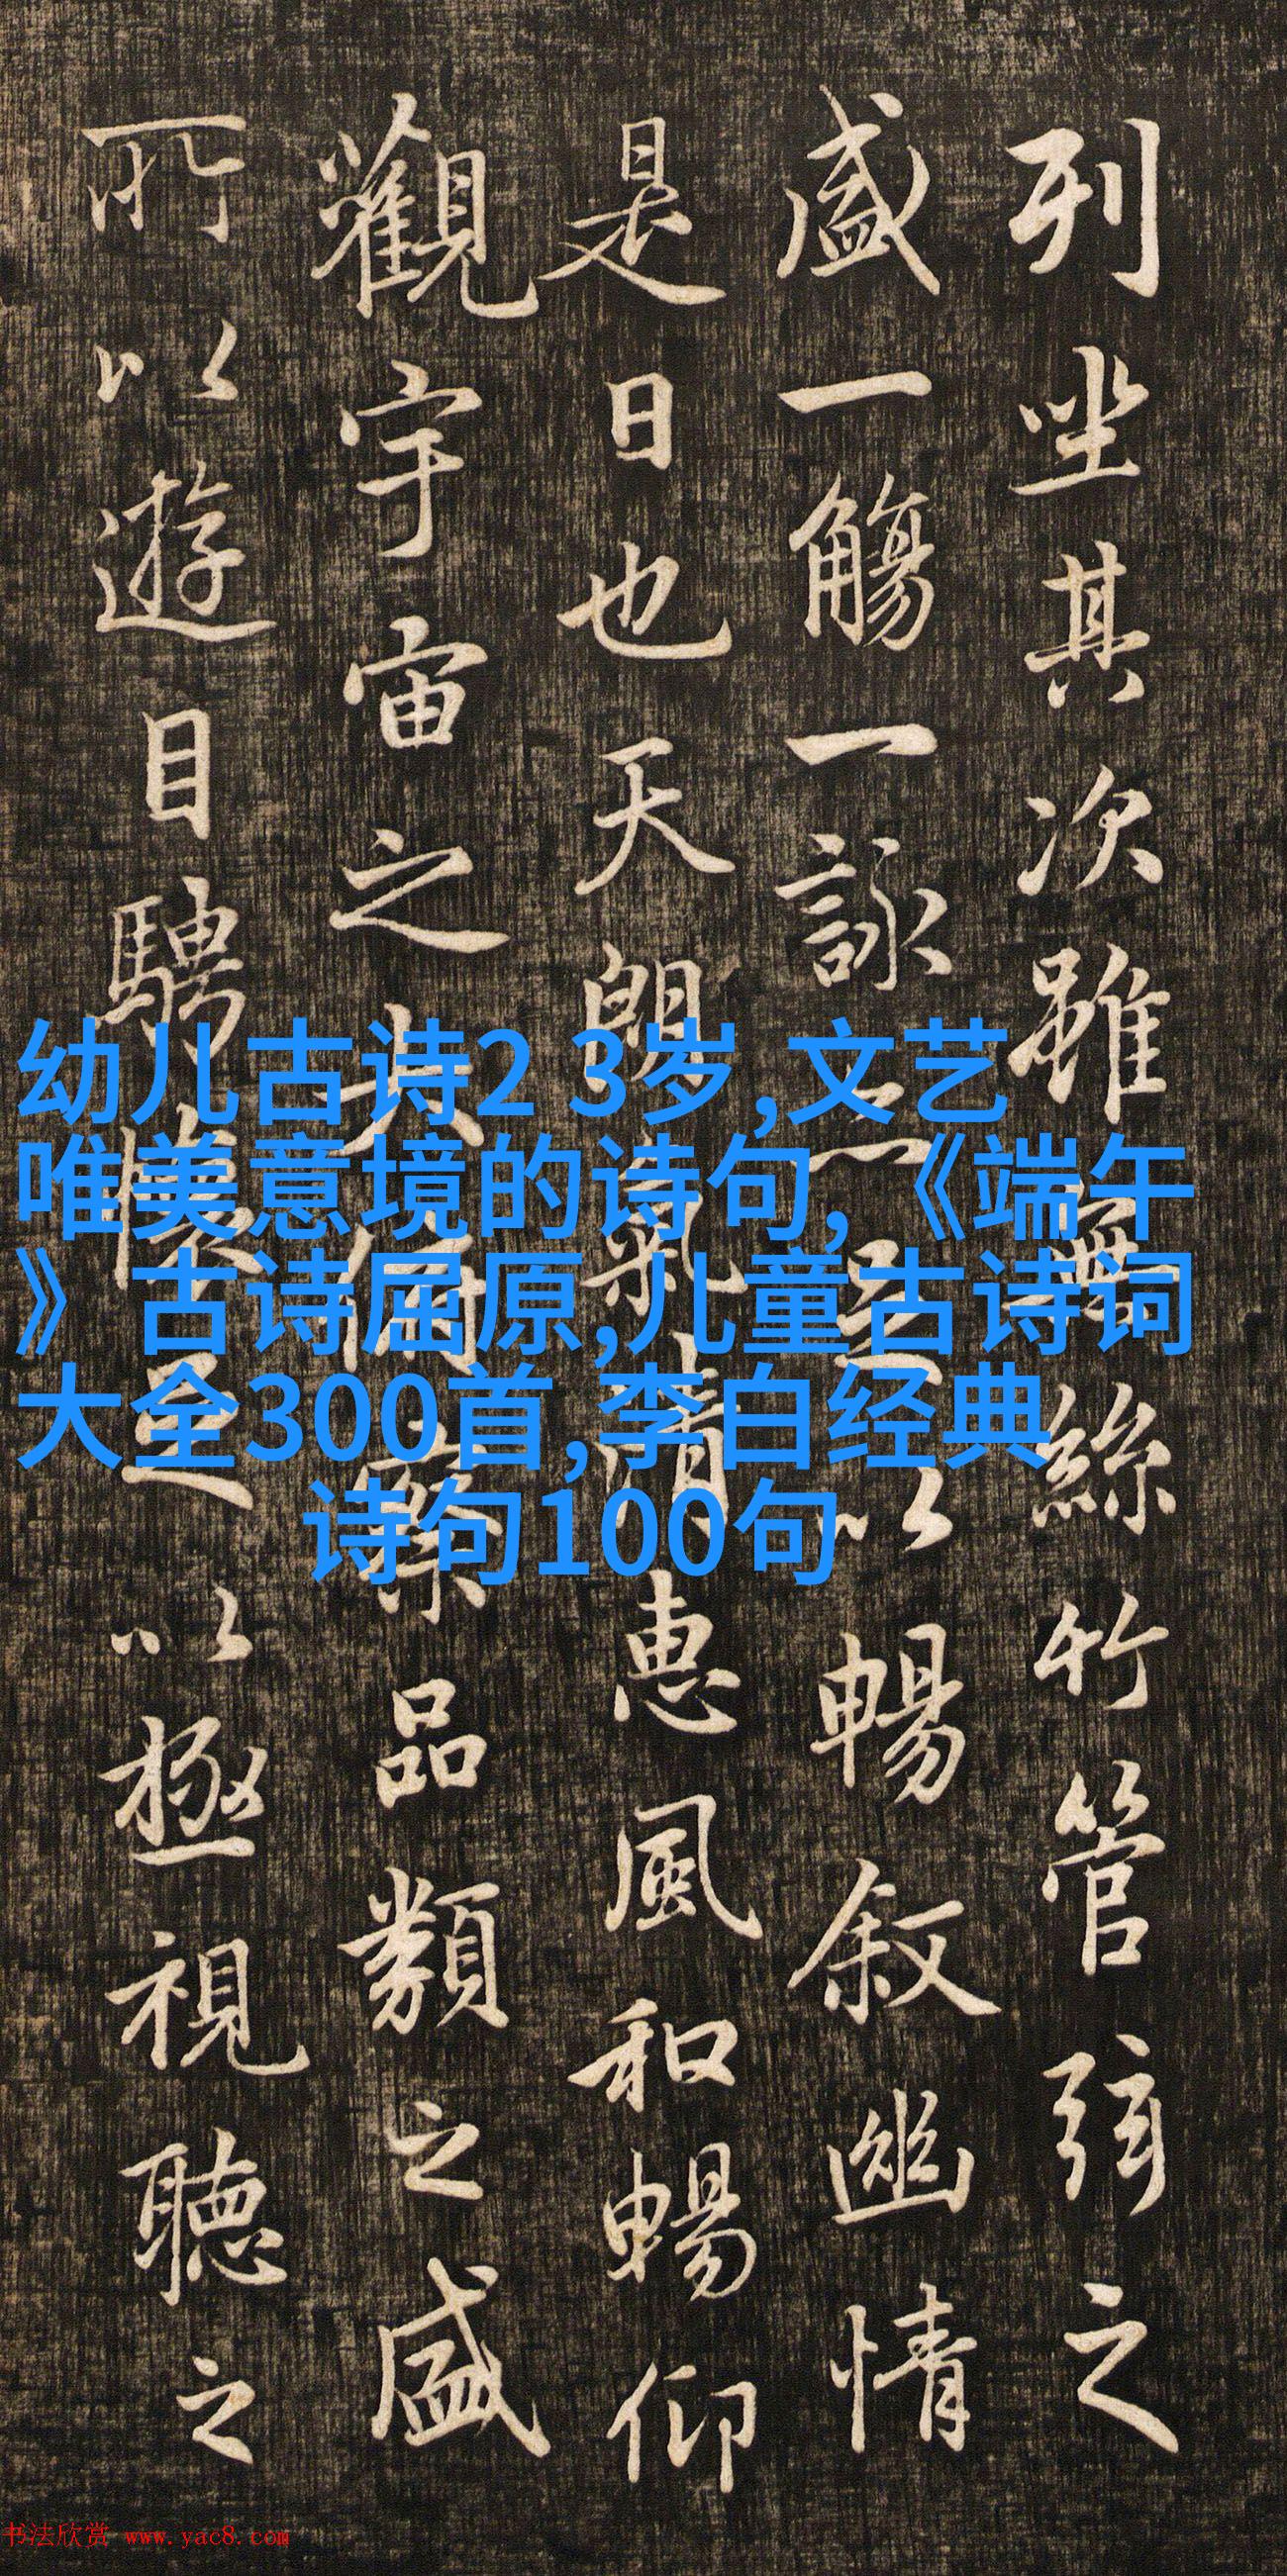 列坐其次雖無絲竹管弦之
盛一觴一詠亦足以暢叙幽情
是日也天朗氣清惠風和暢仰
觀宇宙之大俯察品類之盛
所以遊目騁懷足以極視聽之
幼儿古诗2 3岁,文艺
唯美意境的诗句,《端午
》古诗屈原,儿童古诗词
大全300首,李白经典
诗句100句
书法欣赏 www.yac8.com